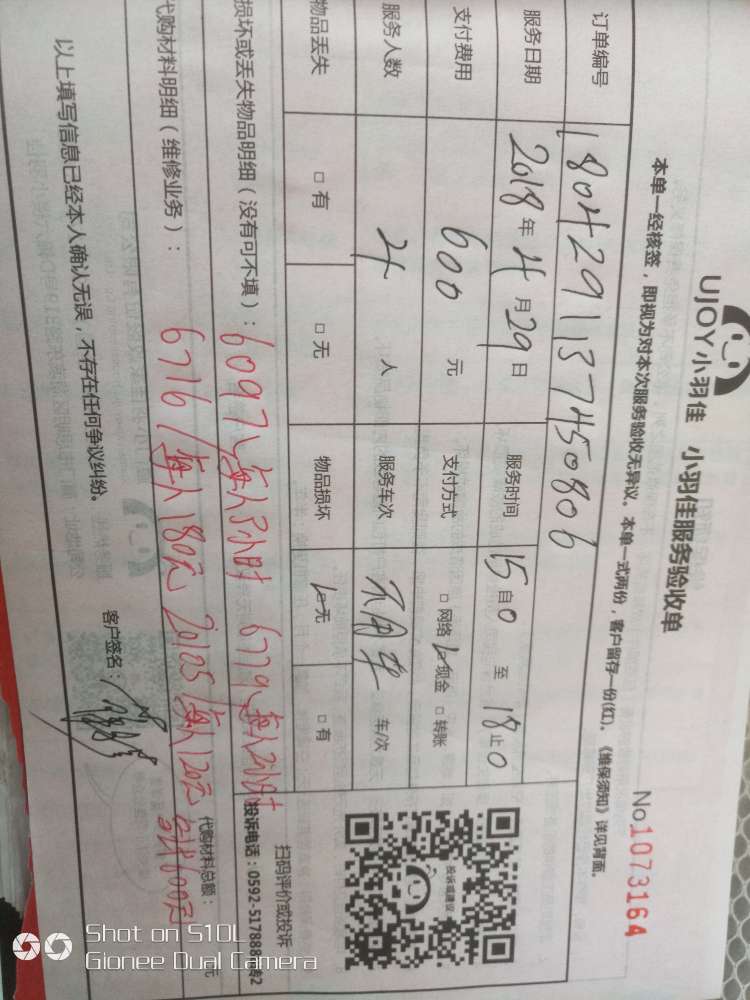 UJOY小羽佳 小羽佳服务验收单
No1073164
本单一经核签，即视为对本次服务验收无异议。本单一式两份，客户留存一份(红)。《维保须知》详见背面。
订单编号 1804291137450806
服务日期 2018年4月29日 服务时间 15自0至18止0
支付费用 600元 支付方式 □网络 现金 □转账
服务人数 4人 服务车次 不用车 车/次
物品丢失 □有 □无 物品损坏 无 □有
扫码评价或投诉
投诉建议
损坏或丢失物品明细（没有可不填）： 每人3小时 每人2小时
投诉电话：0592-517888 转2
代购材料明细（维修业务）： 6716 每人180元 20105 每人120元 600元
代购材料总额： 元
以上填写信息已经本人确认无误，不存在任何争议纠纷。
客户签名：
Shot on S10L
Gionee Dual Camera